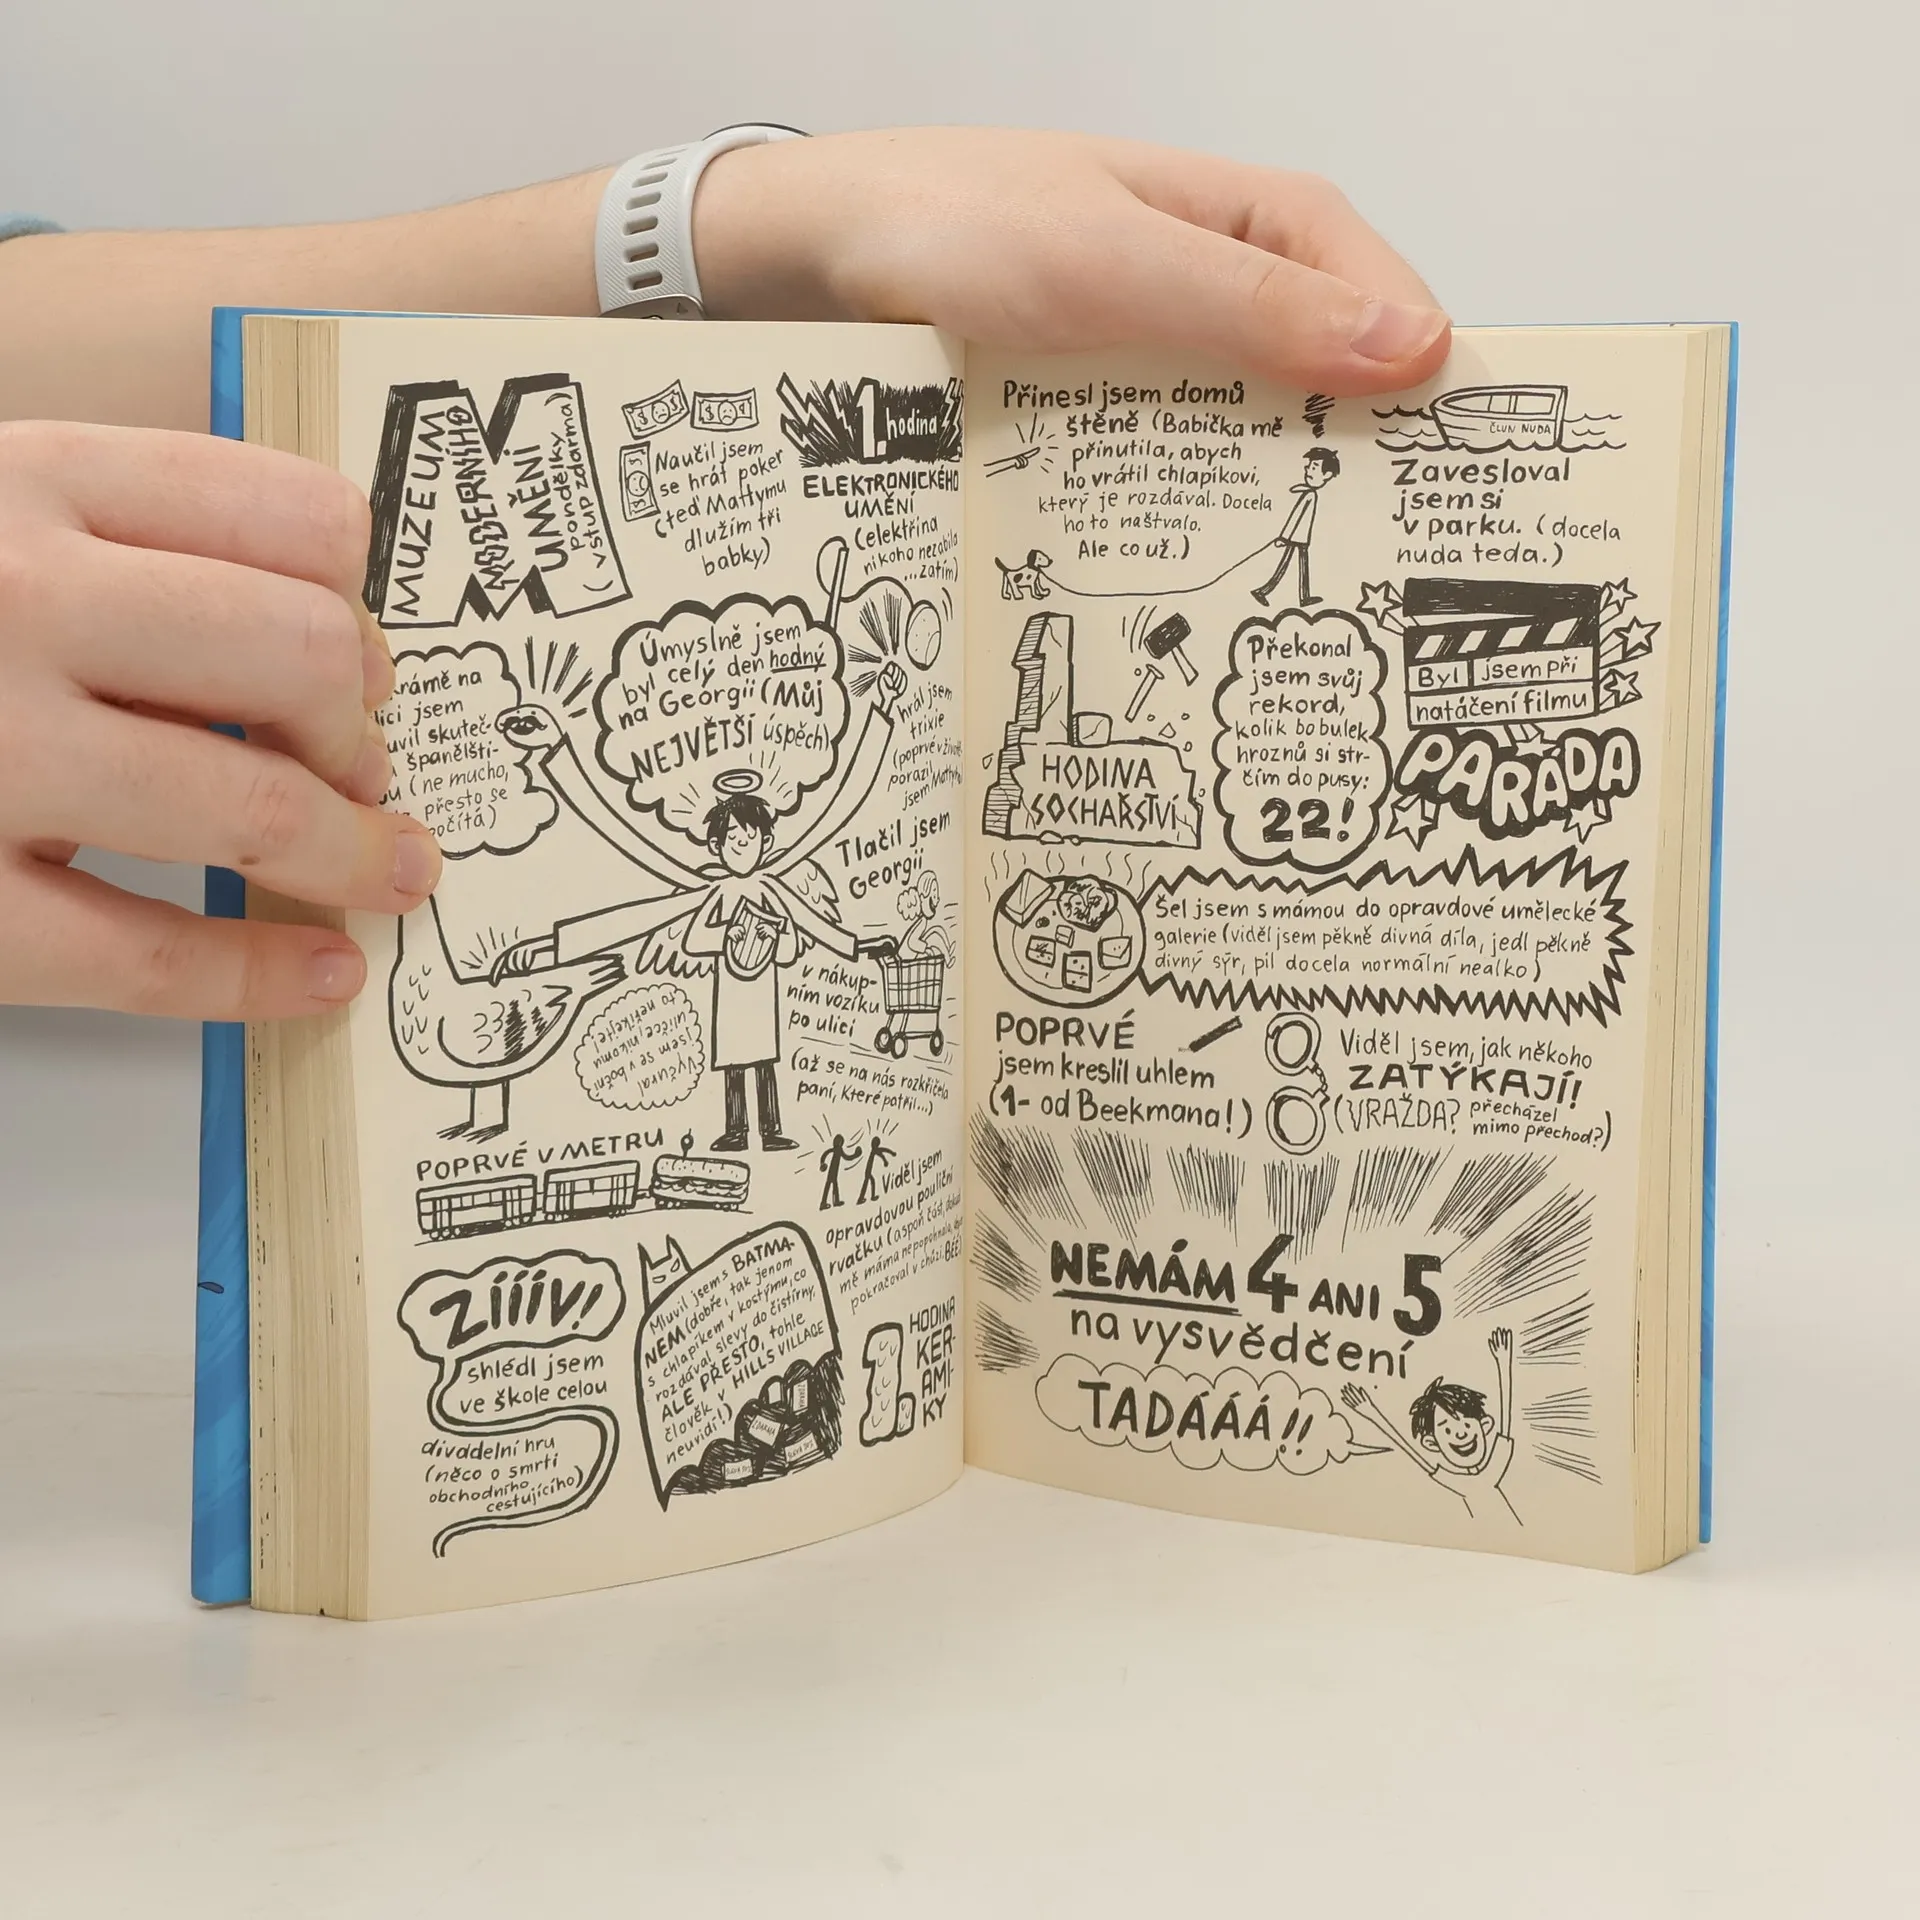 MUZEUM
MODERNÍHO
UMĚNÍ
pondělky
(vstup zdarma)
Naučil jsem
se hrát poker
(teď Mattymu
dlužím tři
babky)
1. hodina
ELEKTRONICKÉHO
UMĚNÍ
(elektřina
nikoho nezabila
...zatím)
krámě na
lici jsem
uvil skuteč-
španělšti-
ou (ne mucho,
přesto se
počítá)
Úmyslně jsem
byl celý den hodný
na Georgii (Můj
NEJVĚTŠÍ úspěch)
hrál jsem
trixie
(poprvé v živo
porazil
jsem Matty
Tlačil jsem
Georgii
v nákup-
ním vozíku
po ulici
(až se na nás rozkřičela
paní, které patřil...)
Vyčural
jsem se v boční
uličce (nikomu
to neříkejte!
POPRVÉ V METRU
Viděl jsem
opravdovou pouliční
rvačku (aspoň část,
mě máma nepopohnala,
pokračoval v chůzi. BÉÉ
ZÍÍÍV!
shlédl jsem
ve škole celou
divadelní hru
(něco o smrti
obchodního
cestujícího)
Mluvil jsem s BATMA-
NEM (dobře, tak jenom
s chlapíkem v kostýmu, co
rozdával slevy do čistírny,
ALE PŘESTO, tohle
člověk v HILLS VILLAGE
neuvidí!)
ZDARMA
1. HODINA
KER-
AMI-
KY
Přinesl jsem domů
štěně (Babička mě
přinutila, abych
ho vrátil chlapíkovi,
který je rozdával. Docela
ho to naštvalo.
Ale co už.)
ČLUN NUDA
Zavesloval
jsem si
v parku. (docela
nuda teda.)
1.
HODINA
SOCHAŘSTVÍ
Překonal
jsem svůj
rekord,
kolik bobulek
hroznů si str-
čím do pusy:
22!
Byl jsem při
natáčení filmu
PARÁDA
Šel jsem s mámou do opravdové umělecké
galerie (viděl jsem pěkně divná díla, jedl pěkně
divný sýr, pil docela normální nealko)
POPRVÉ
jsem kreslil uhlem
(1- od Beekmana!)
Viděl jsem, jak někoho
ZATÝKAJÍ!
(VRAŽDA? přecházel
mimo přechod?)
NEMÁM 4 ANI 5
na vysvědčení
TADÁÁÁ!!